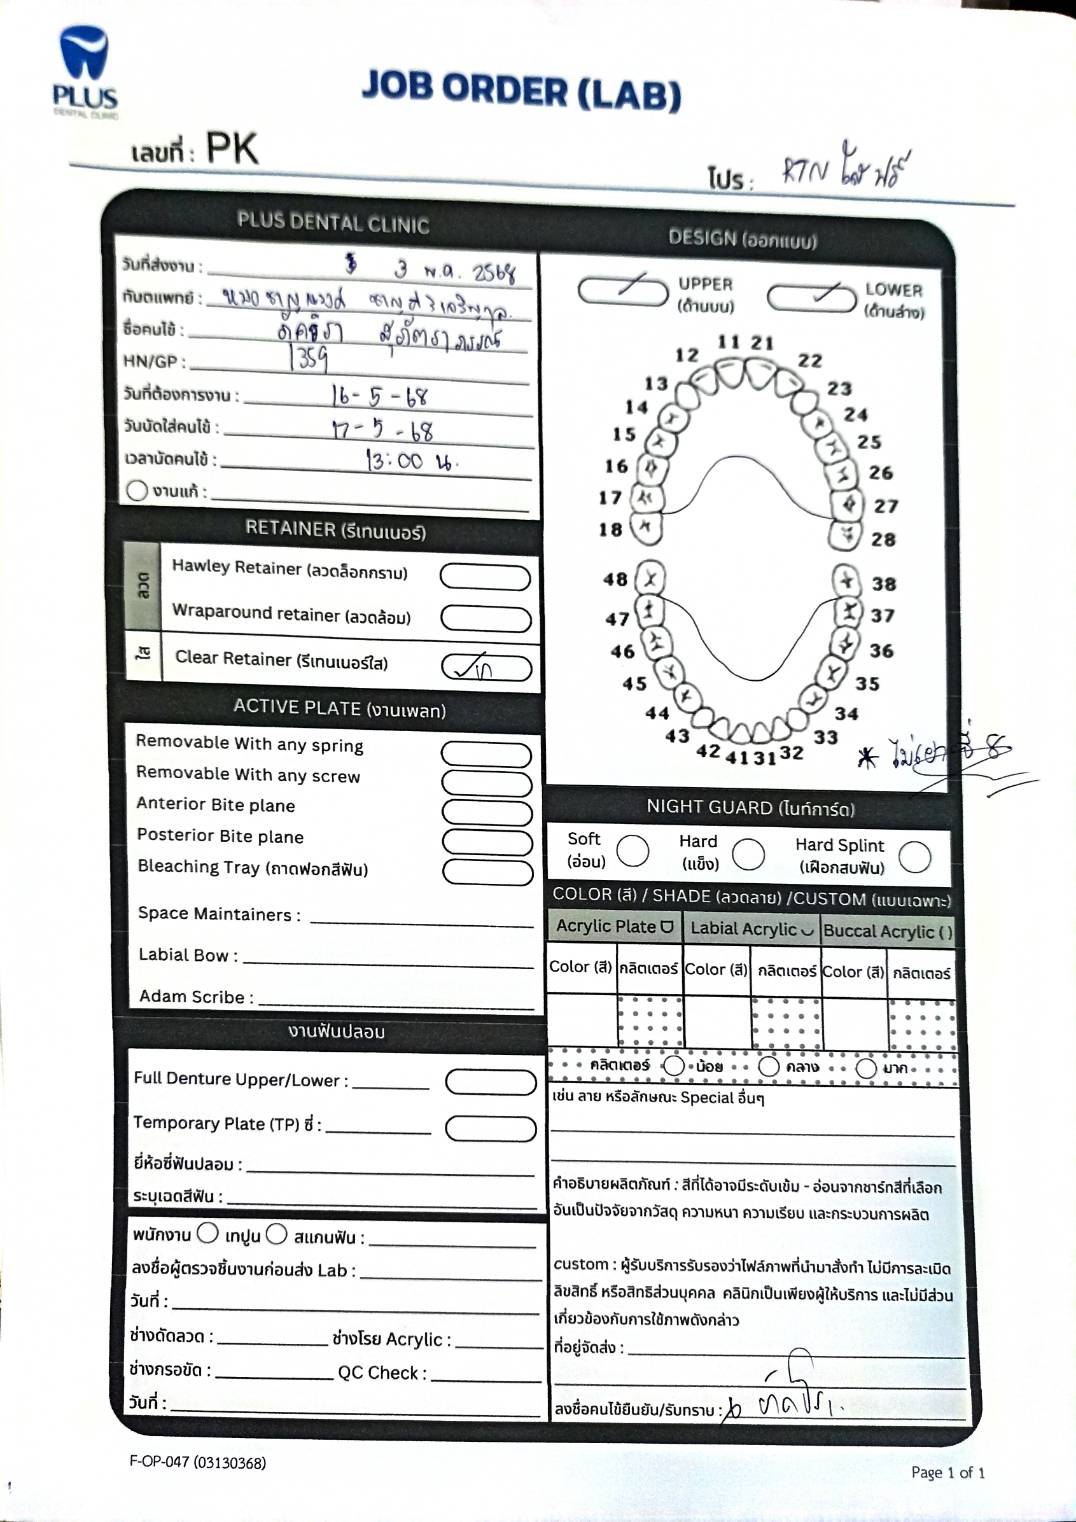 PLUS
DENTAL CLINIC
JOB ORDER (LAB)
เลขที่ : PK
โปร : RTN ใส ฟรี
PLUS DENTAL CLINIC
วันที่ส่งงาน : 3 พ.ค. 2568
ทันตแพทย์ : หมอ
ชื่อคนไข้ :
HN/GP : 1359
วันที่ต้องการงาน : 16 - 5 - 68
วันนัดใส่คนไข้ : 17 - 5 - 68
เวลานัดคนไข้ : 13:00 น.
งานแก้ :
RETAINER (รีเทนเนอร์)
ลวด
Hawley Retainer (ลวดล็อกกราม)
Wraparound retainer (ลวดล้อม)
ใส
Clear Retainer (รีเทนเนอร์ใส)
ACTIVE PLATE (งานเพลท)
Removable With any spring
Removable With any screw
Anterior Bite plane
Posterior Bite plane
Bleaching Tray (ถาดฟอกสีฟัน)
Space Maintainers :
Labial Bow :
Adam Scribe :
งานฟันปลอม
Full Denture Upper/Lower :
Temporary Plate (TP) ซี่ :
ยี่ห้อซี่ฟันปลอม :
ระบุเฉดสีฟัน :
พนักงาน เทปูน สแกนฟัน :
ลงชื่อผู้ตรวจชิ้นงานก่อนส่ง Lab :
วันที่ :
ช่างดัดลวด : ช่างโรย Acrylic :
ช่างกรอขัด : QC Check :
วันที่ :
DESIGN (ออกแบบ)
UPPER LOWER
(ด้านบน) (ด้านล่าง)
11 21
12 22
13 23
14 24
15 25
16 26
17 27
18 28
48 38
47 37
46 36
45 35
44 34
43 33
42 41 31 32
* ไม่เอาซี่ 8
NIGHT GUARD (ไนท์การ์ด)
Soft Hard Hard Splint
(อ่อน) (แข็ง) (เฝือกสบฟัน)
COLOR (สี) / SHADE (ลวดลาย) /CUSTOM (แบบเฉพาะ)
Acrylic Plate Labial Acrylic Buccal Acrylic ( )
Color (สี) กลิตเตอร์ Color (สี) กลิตเตอร์ Color (สี) กลิตเตอร์
กลิตเตอร์ น้อย กลาง มาก
เช่น ลาย หรือลักษณะ Special อื่นๆ
คำอธิบายผลิตภัณฑ์ : สีที่ได้อาจมีระดับเข้ม - อ่อนจากชาร์ทสีที่เลือก
อันเป็นปัจจัยจากวัสดุ ความหนา ความเรียบ และกระบวนการผลิต
custom : ผู้รับบริการรับรองว่าไฟล์ภาพที่นำมาสั่งทำ ไม่มีการละเมิด
ลิขสิทธิ์ หรือสิทธิส่วนบุคคล คลินิกเป็นเพียงผู้ให้บริการ และไม่มีส่วน
เกี่ยวข้องกับการใช้ภาพดังกล่าว
ที่อยู่จัดส่ง :
ลงชื่อคนไข้ยืนยัน/รับทราบ :
F-OP-047 (03130368)
Page 1 of 1